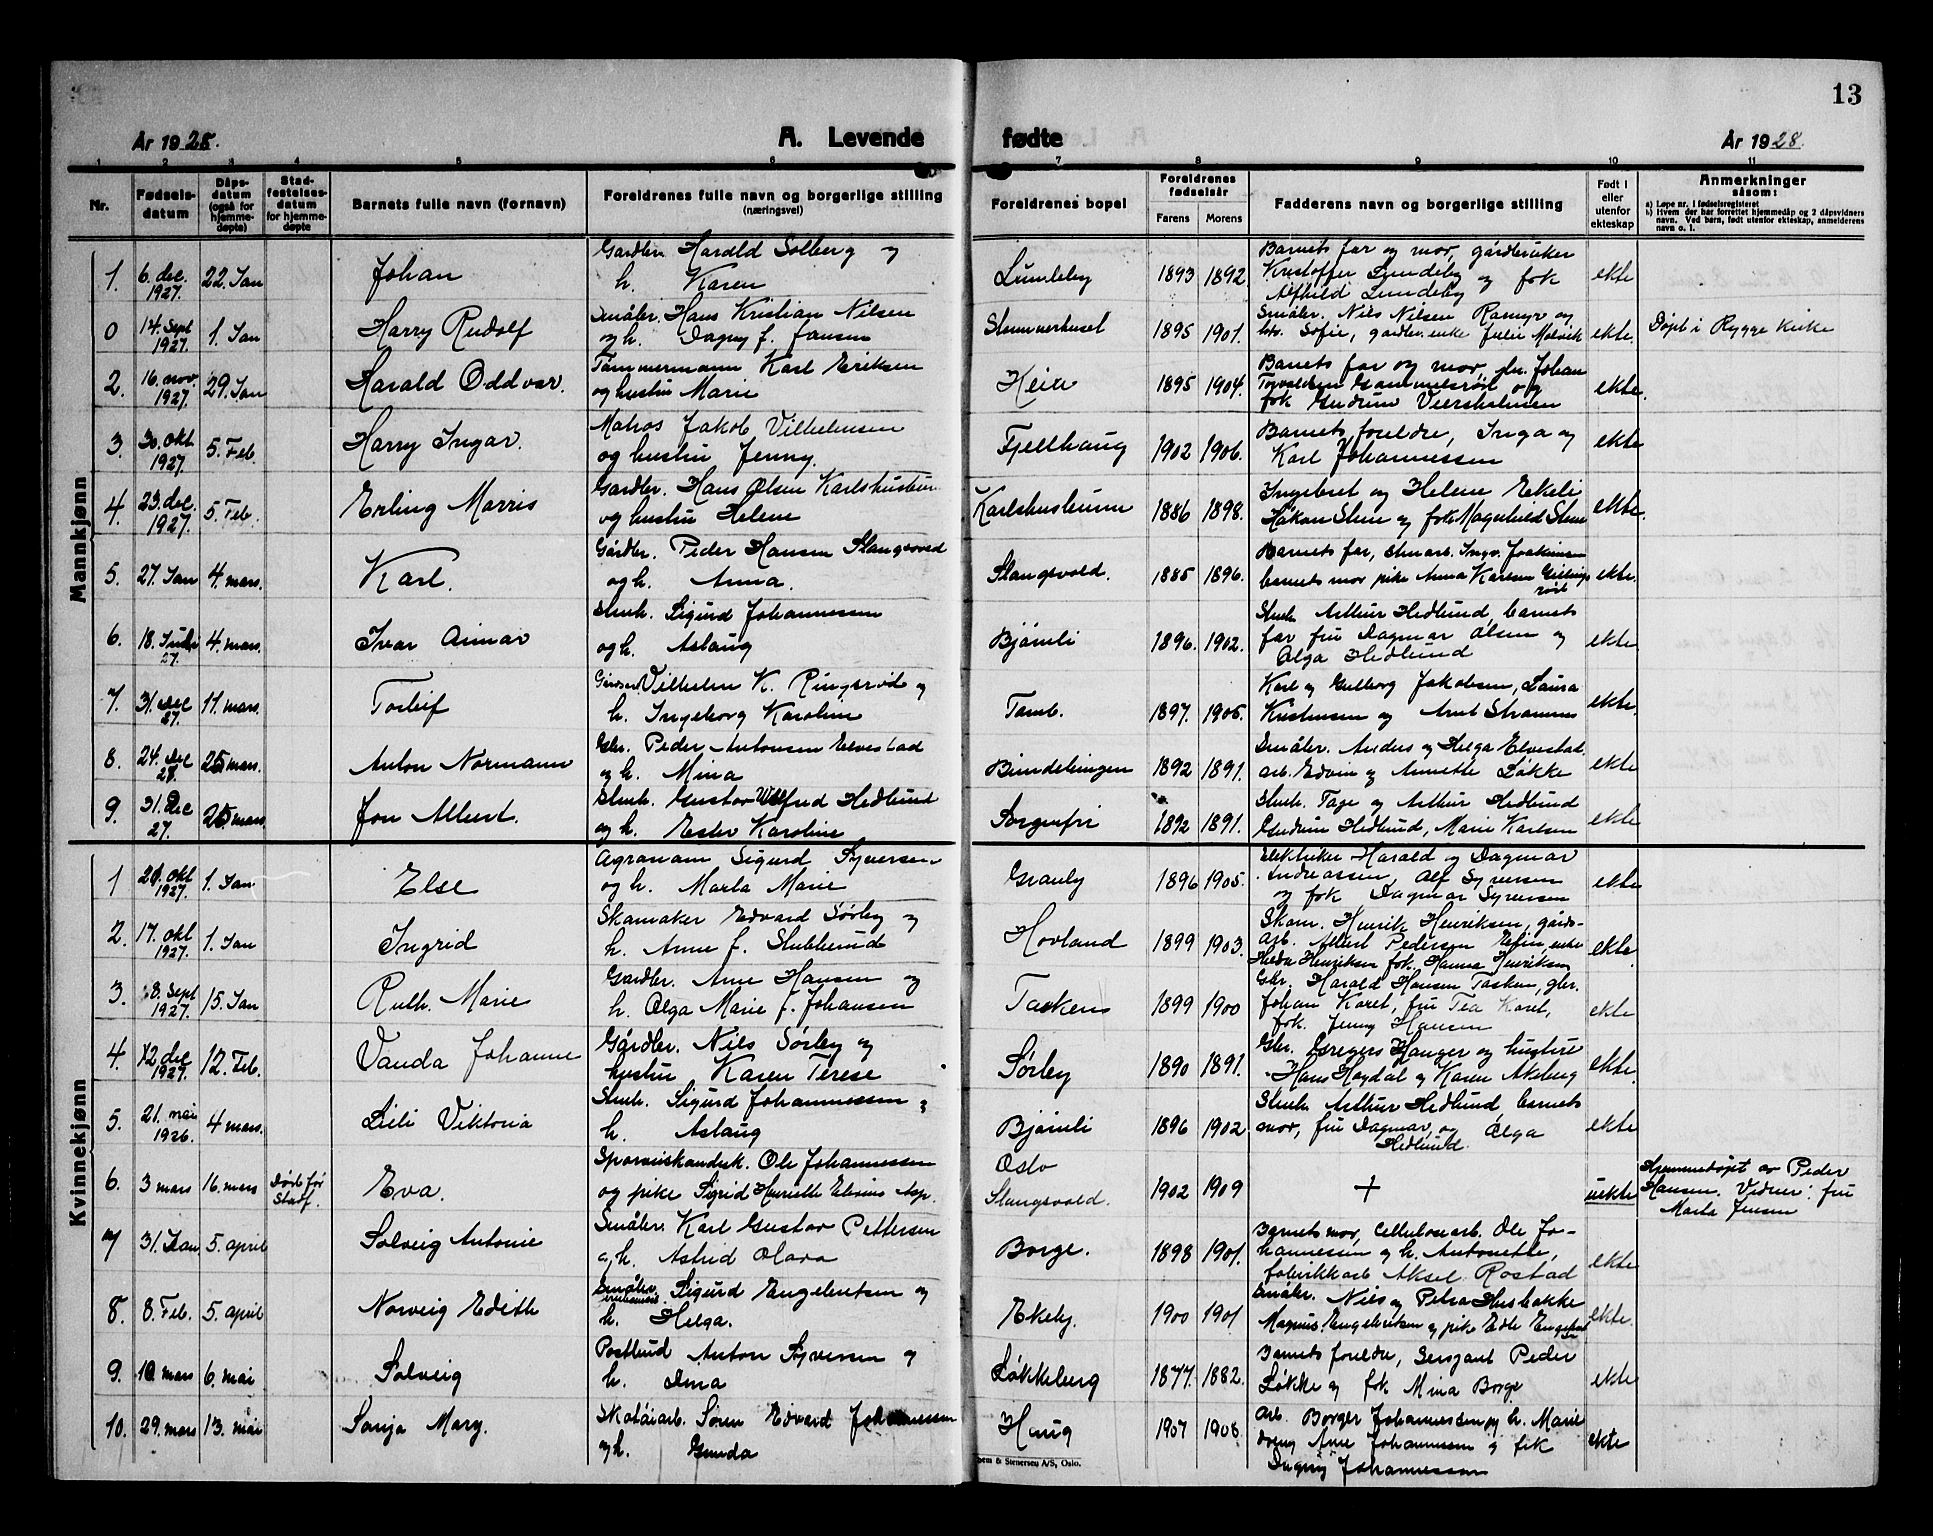 13
År 1928.
A. Levende
fødte
År 1928.
1 2 3 4 5 6 7 8 9 10 11
Nr.
Fødselsdatum
Dåpsdatum (også for hjemmedøpte)
Stadfestelsesdatum for hjemmedøpte
Barnets fulle navn (fornavn)
Foreldrenes fulle navn og borgerlige stilling (næringsvei)
Foreldrenes bopel
Foreldrenes fødselsår
Farens Morens
Fadderens navn og borgerlige stilling
Født i eller utenfor ekteskap
Anmerkninger såsom:
a) Løpe nr. i fødselsregisteret
b) Hvem der har forrettet hjemmedåp og 2 dåpsvidners navn. Ved barn, født utenfor ekteskap, anmelderens navn o. l.
Mannkjønn
1. 6. dec. 1927. 22. Jan Johan Gardbr. Harald Solberg og h. Karen Lundeby 1893 1892. Barnets far og mor, gårdbruker Kristoffer Lundeby og frk Alfhild Lundeby ekte
0 14. Sept 1927. 1. Jan Harry Rudolf Småbr. Hans Kristian Nilsen og h. Dagny f. Jansen 1895 1901. Småbr. Nils Nilsen og hr. Sofie, gardbr. enke Julie ekte. Døpt i Rygge kirke
2. 16. nov. 1927. 29. Jan Harald Oddvar. Tømmermann Karl Eriksen og hustru Marie Heia 1895 1904. Barnets far og mor, Johan Torvaldsen Gammelsrød og frk Gudrun ekte.
3. 30. okt 1927. 5. Feb. Harry Ingar. Matros Jakob Vilhelmsen og hustru Jenny. Fjellhaug 1902 1906. Barnets foreldre, Inga og Karl Johannessen ekte
4. 23. dec. 1927. 5. Feb. Erling Morris Gardbr. Hans Olsen og hustru Helene 1886 1898. Ingebret og Helene Ekeli Håkon og frk Magnhild ekte.
5. 27. Jan 4. mars. Karl. Gårdbr. Peder Hansen Slangsvold og h. Anna. Slangsvold. 1885 1896. Barnets far, Ingv. Joakimsen barnets mor pike Anna Karlsen ekte.
6. 18. 27. 4. mars. Ivar Aimar Sigurd Johannessen og h. Aslaug Bjørnli 1896. 1902. Arthur Hedlund, barnets far fru Dagmar Olsen og Olga Hedlund ekte.
7. 31. Dec 27. 11. mars. Torleif Vilhelm K. Ringsrød og h. Ingeborg Karoline Tomb. 1897. 1905. Karl og Gulborg Jakobsen, Laura Kristensen og Arnt ekte.
8. 24. Dec 28. 25 mars. Anton Normann Gbr. Peder Antonsen Elvestad og h. Mina 1892 1891. Småbr. Anders og Helga Elvestad. arb. Edvin og Annette Løkke ekte
9. 31. Dec 27. 25 mars. Jon Albert. Gustav Wilfred Hedlund og h. Ester Karoline Sorgenfri 1892 1891. Tage og Arthur Hedlund Gudrun Hedlund, Marie Karlsen ekte
Kvinnekjønn
1 okt 1927. 1. Jan Else Agronom Sigurd Syversen og h. Marta Marie Granly 1896 1905. Elektriker Harald og Dagmar Andreassen, Alf Syversen og frk Dagmar Syversen ekte
2. 17. okt 1927. 1. Jan Ingrid Skomaker Edvard Sørby og h. Anne f. Hovland 1899 1903. Skom. Henrik Henriksen, gårds-arb. Albert Pedersen enke Henriksen frk. Hanna Henriksen ekte.
3. 8. Sept 1927. 15. Jan Ruth Marie Gardbr. Arne Hansen og h. Olga Marie f. Johansen Tasken 1899 1900 Gbr. Harald Hansen Tasken, gbr. Johan Karet, fru Tea Karet, frk. Jenny Hansen ekte
4. 12 dec 1927. 12. Feb. Vanda Johanne Gårdbr. Nils Sørby og hustru Karen Terese Sørby 1890 1891. Gbr. Gregers Hauger og hustru Hans Høydal og Karen Akeberg ekte.
5. 21. mai 1926. 4 mars. Lili Viktoria Sigurd Johannessen og h. Aslaug Bjørnli 1896 1902 Arthur Hedlund, barnets mor, fru Dagmar og Olga Hedlund. ekte
6. 3 mars 16. mars Død før Stadf. Eva. Ole Johannessen og pike Sigrid Henriette Oslo Slangsvold. 1902 1909 + uekte Hjemmedøpt av Peder Hansen. Vidner: fru Marta Jensen
7 31. Jan 5. april Solveig Antonie Småbr. Karl Gustav Pettersen og h. Astrid Olava Borge. 1898 1901. Barnets mor, Cellulosearb. Ole Johannessen og h. Antonette, fabrikkarb Aksel Rostad ekte
8. 8. Feb. 5. april Norveig Edith Småbr. Sigurd Engebretsen og h. Helga. Ekeby. 1900 1901 Småbr. Nils og Petra Husebakke Magnus Engebretsen og pike Edle ekte.
9. 10 mars 6. mai Solveig Postbud Anton Syversen og h. Løkkeberg 1877. 1882. Barnets foreldre, Sersjant Peder Løkke og frk Mina Borge ekte
10. 29. mars 13. mai Sonja Mary. Skotøiarb. Søren Edvard Johannessen og h. Gunda Haug 1907 1908. Arb. Borger Johannessen og h. Marie dreng Arne Johannessen og frk Dagny Johannessen ekte
& Stenersen A/S, Oslo.